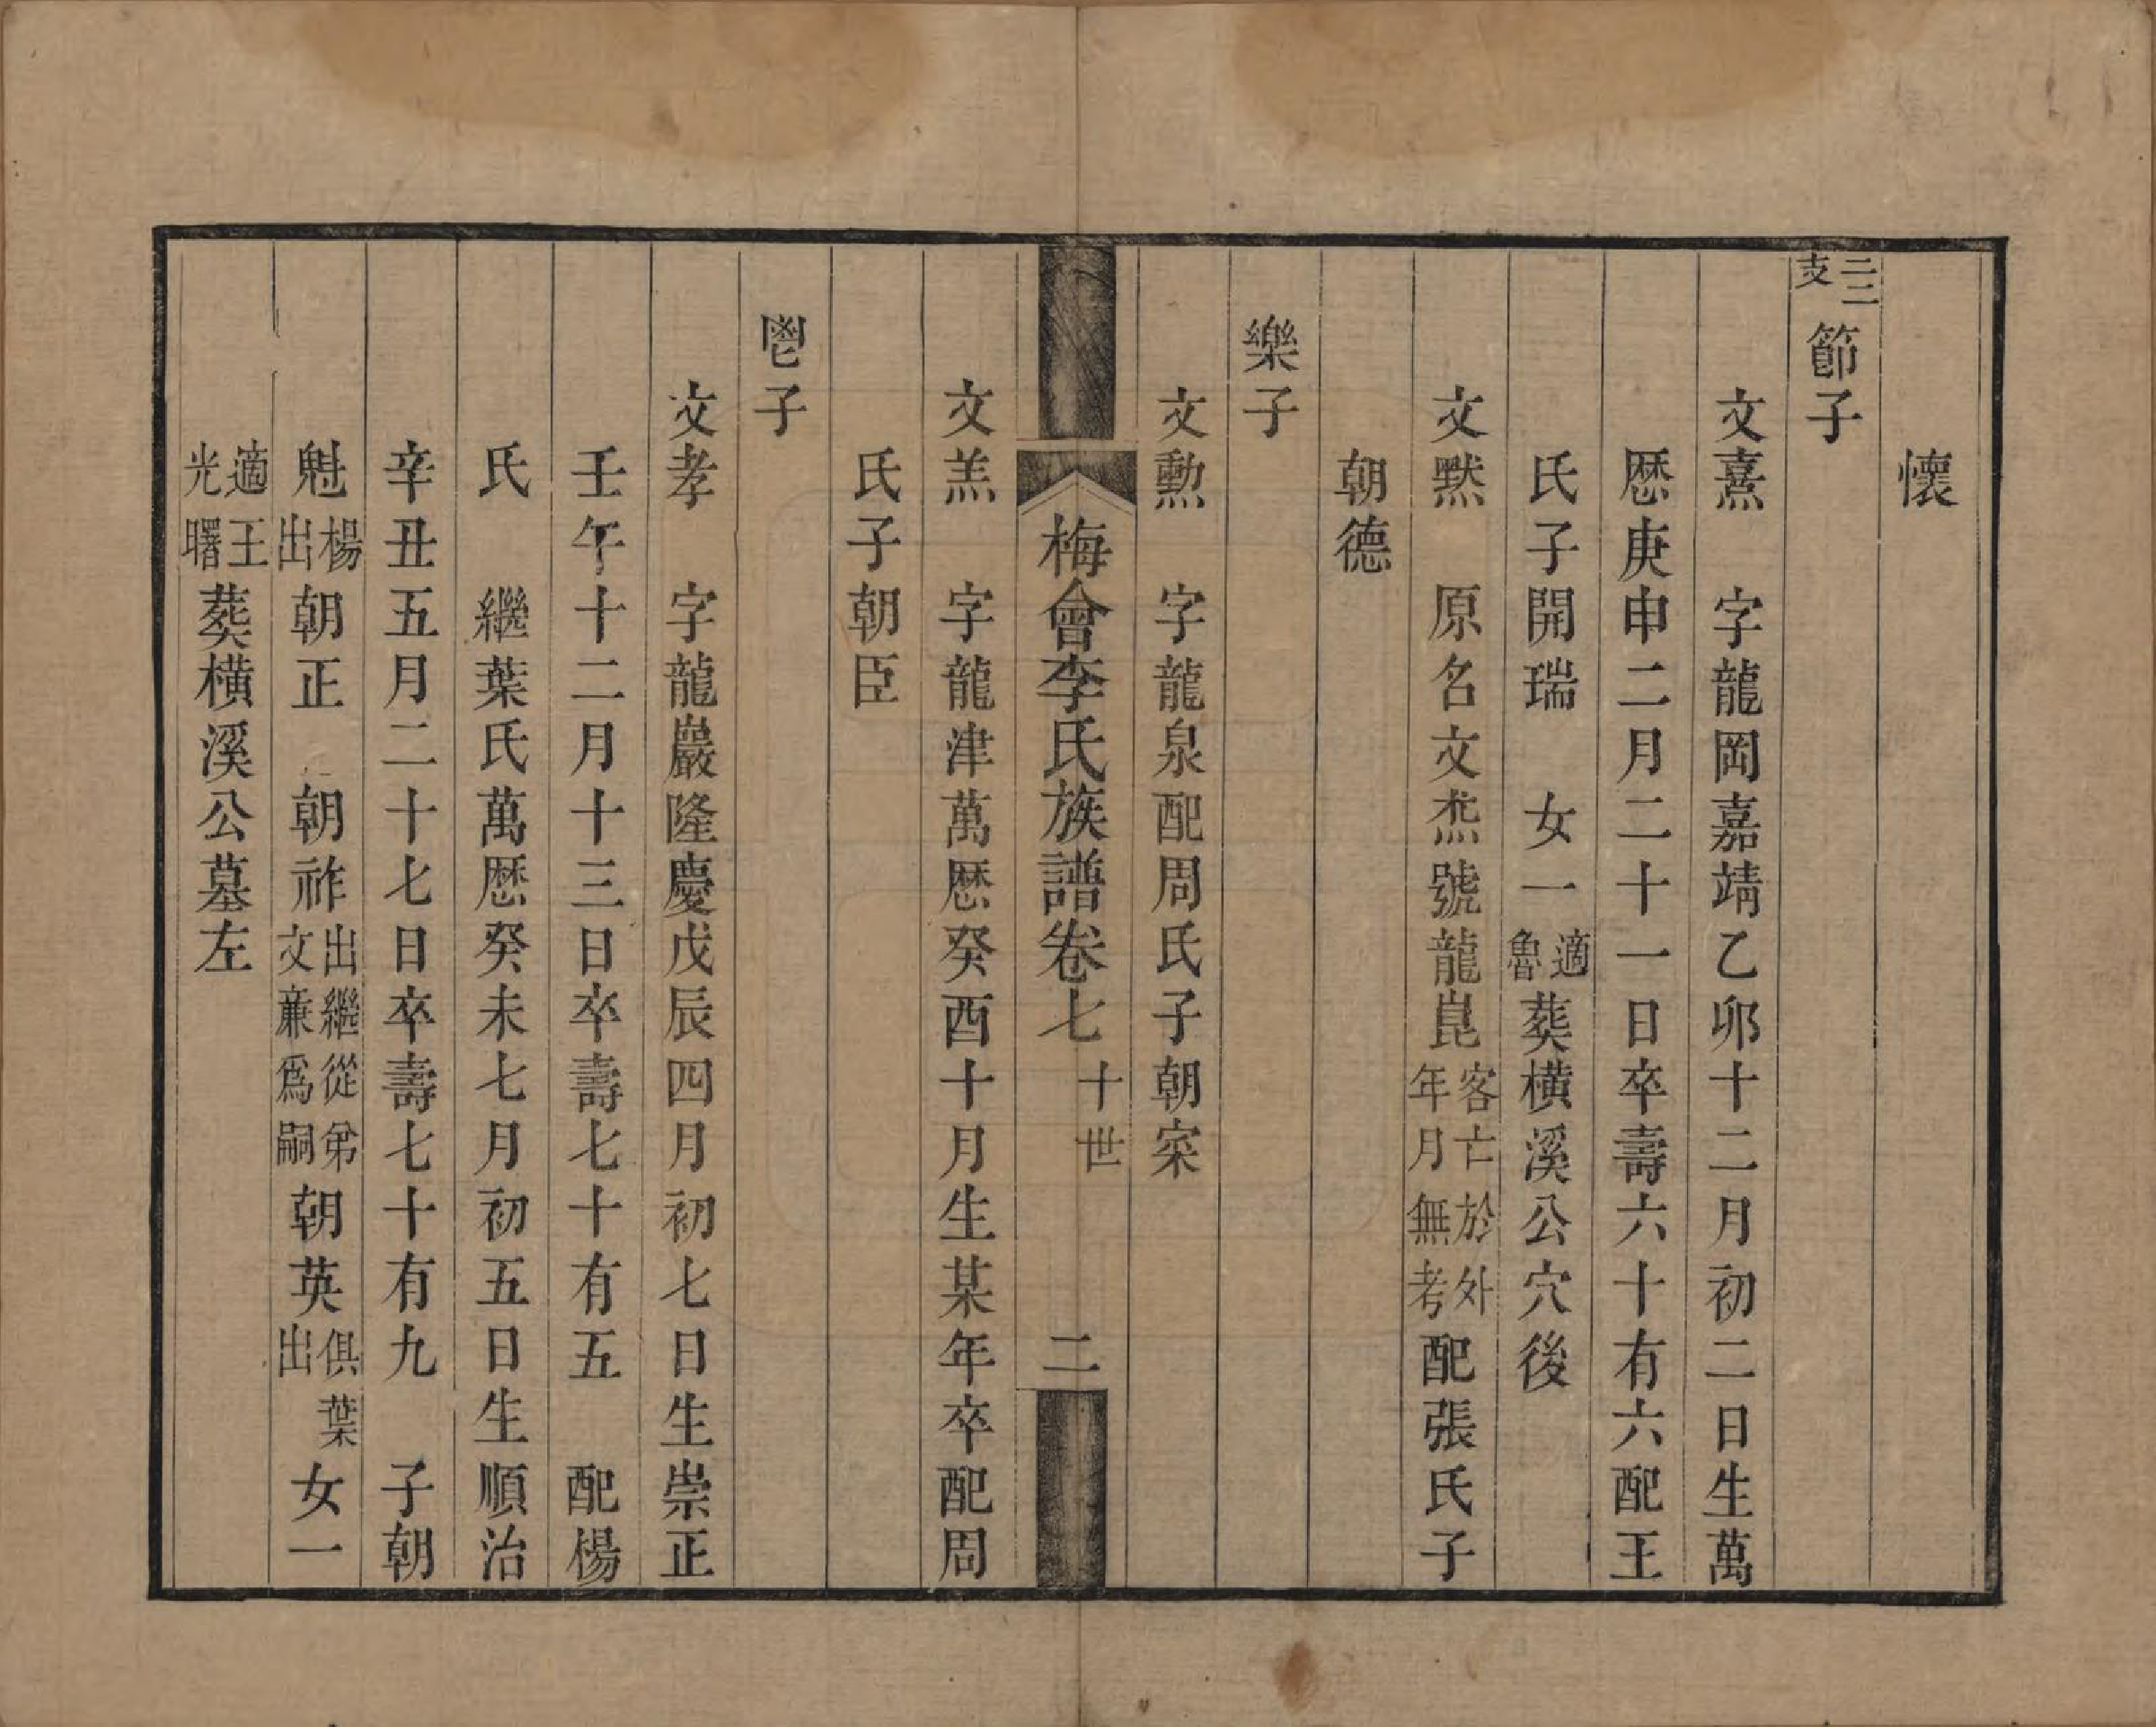 懷
二二支節子
文熹　字龍岡嘉靖乙卯十二月初二日生萬
厯庚申二月二十一日卒壽六十有六配王
氏子開瑞　女一適魯葬橫溪公穴後
文黙　原名文炁號龍崑客亡於外年月無考配張氏子
朝德
樂子
文勲　字龍泉配周氏子朝寀
梅會李氏族譜卷七　十世　二
文羔　字龍津萬厯癸酉十月生某年卒配周
氏子朝臣
鬯子
文孝　字龍巖隆慶戊辰四月初七日生崇正
壬午十二月十三日卒壽七十有五　配楊
氏　繼葉氏萬厯癸未七月初五日生順治
辛丑五月二十七日卒壽七十有九　子朝
魁楊出朝正　朝祚出繼從弟文蒹爲嗣朝英俱葉出女一
適王光曙葬橫溪公墓左